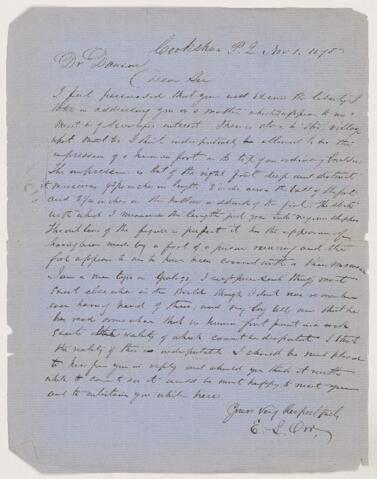 Cookshire P. Q. Nov 1. 187
Dr Dawson
Dear Sir
I feel persuaded that you will excuse the liberty I
take in addressing you on a matter which appears to me
must be of Sovereign interest. There is close to this village
what must be I think indisputably be allowed to be the
impression of a human foot on the top of an ordinary boulder
The impression is that of the right foot deep and distinct
it measures inches in length inches across the ball of the foot
and inches in the hollow of the foot. the
with which I measured the length
The outline of the figure is perfect it has the appearance of
having been made by a foot of a person running and the
foot appears to me to have been covered with a
I am a mere in Geology. I suppose such things must
exist elsewhere in the world though I do not now remember
ever having heard of them, and my boy tells me that he
has read somewhere that no human foot print in a rock
exists the reality of which cannot be disputed. I think
the reality of this is undisputable. I should be much pleased
to hear from you in reply and should you think it worth
while to come & see it would be most happy to meet you
and to entertain you while here
Yours very Respectfully
E. S. Orr,